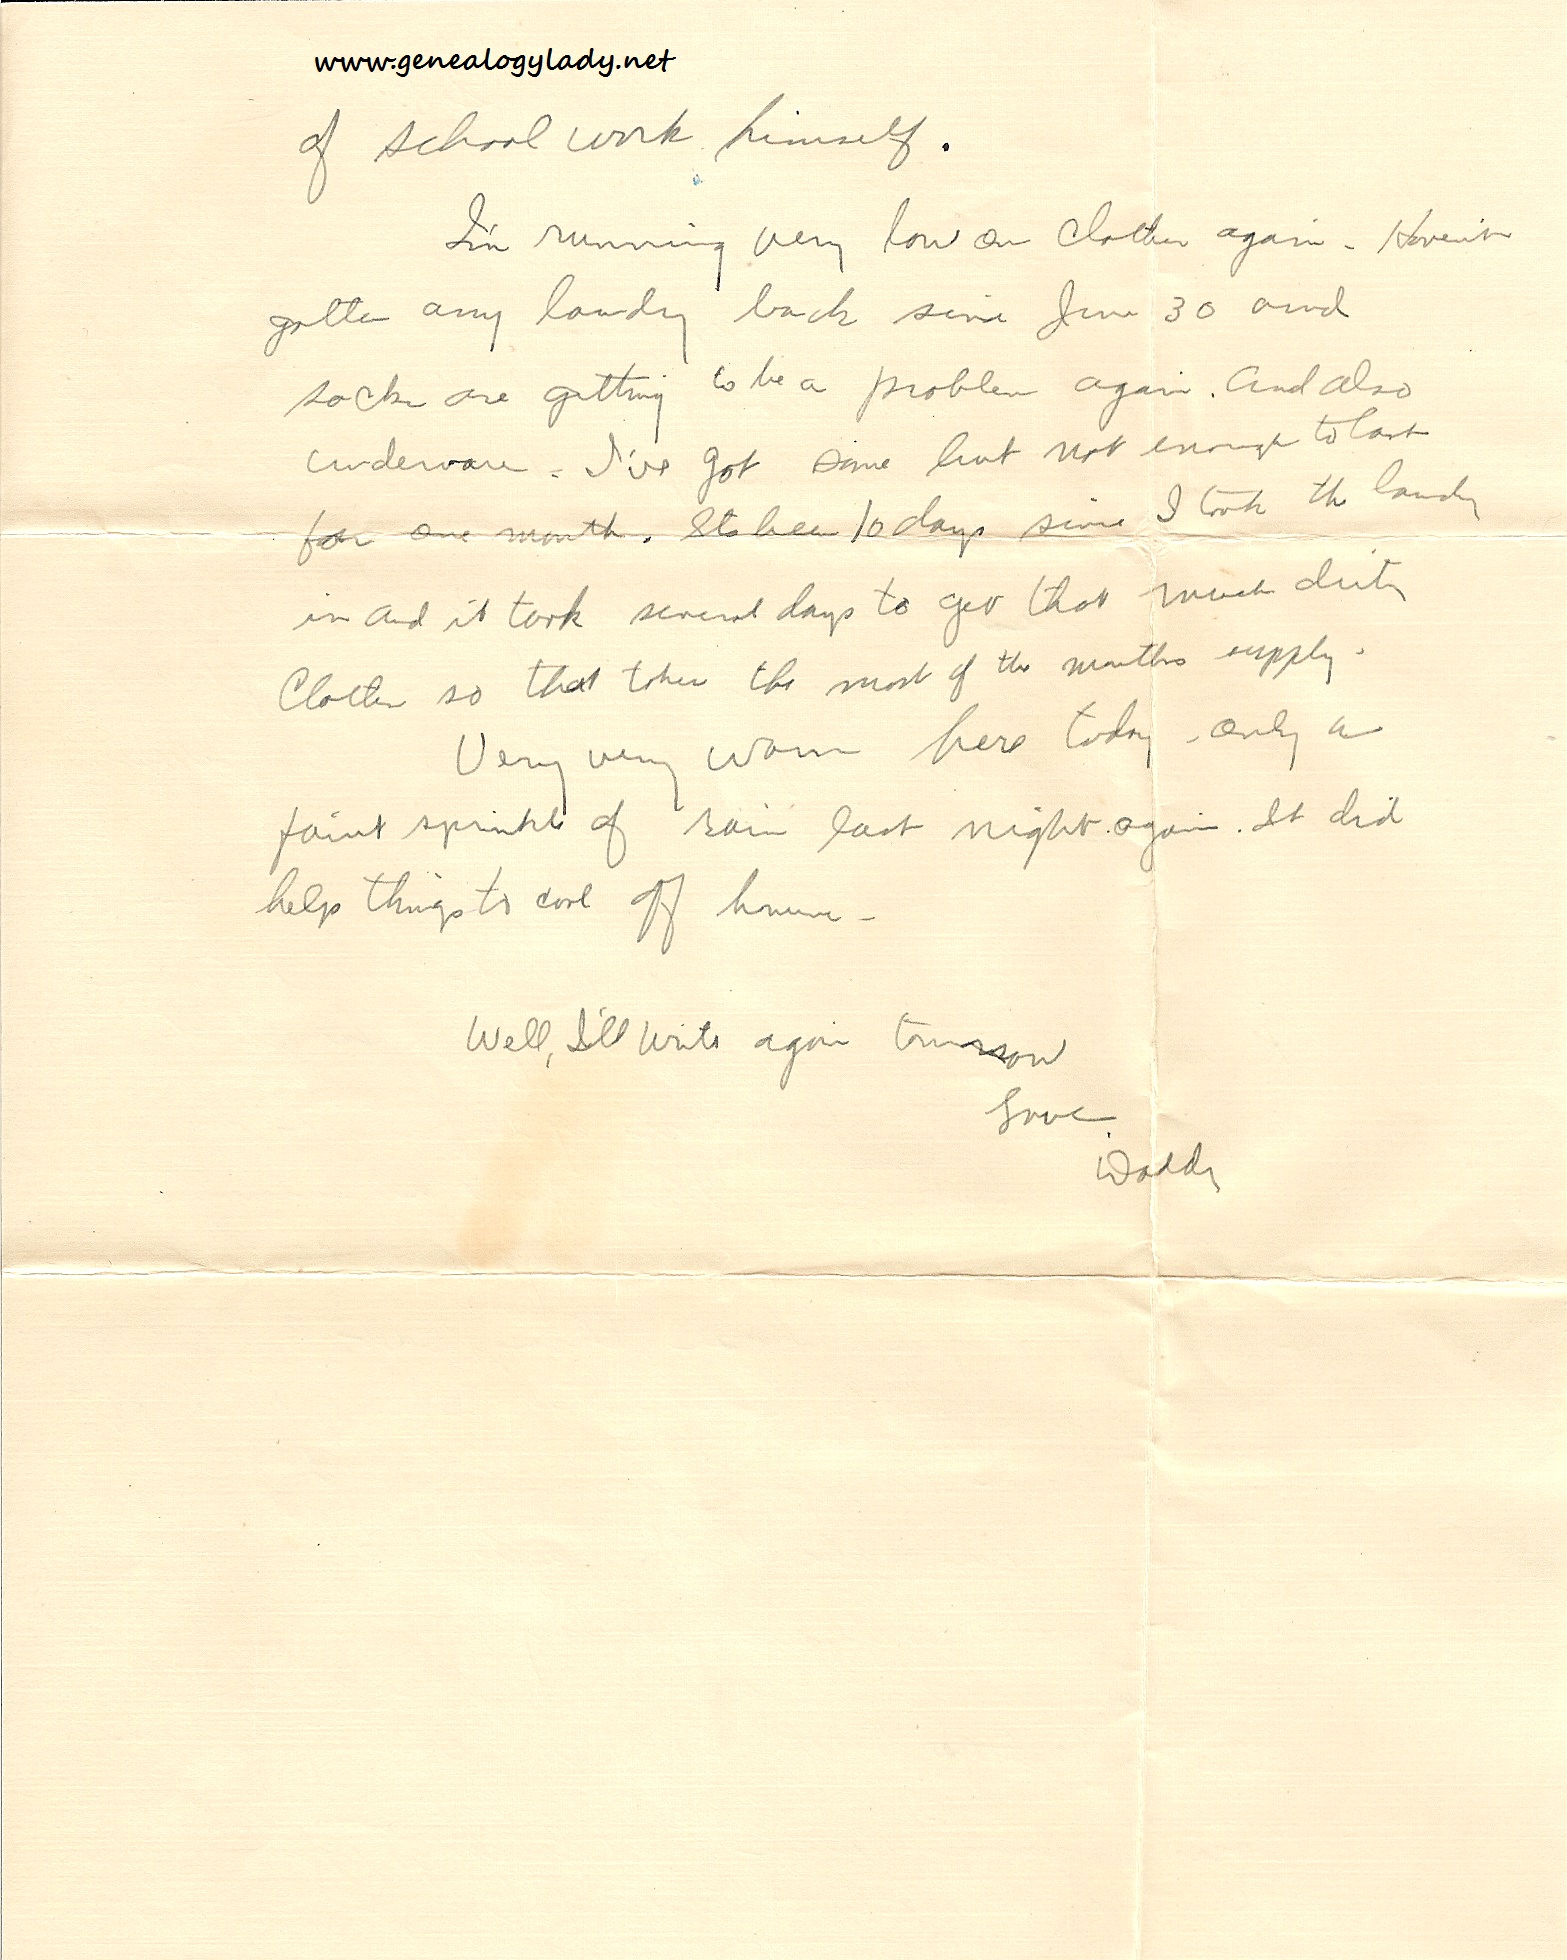 www.genealogylady.net
of school work himself.
I'm running very low on clothes again - Haven't
gotten any laundry back since June 30 and
socks are getting to be a problem again. And also
underware - I've got some but not enough to last
for one month. Its been 10 days since I took the laundry
in and it took several days to get that much dirty
clothes so that takes the most of the months supply.
Very very warm here today - only a
faint sprinkle of rain last night again. It did
help things to cool off however -
Well, I'll write again tomorrow
Love
Daddy